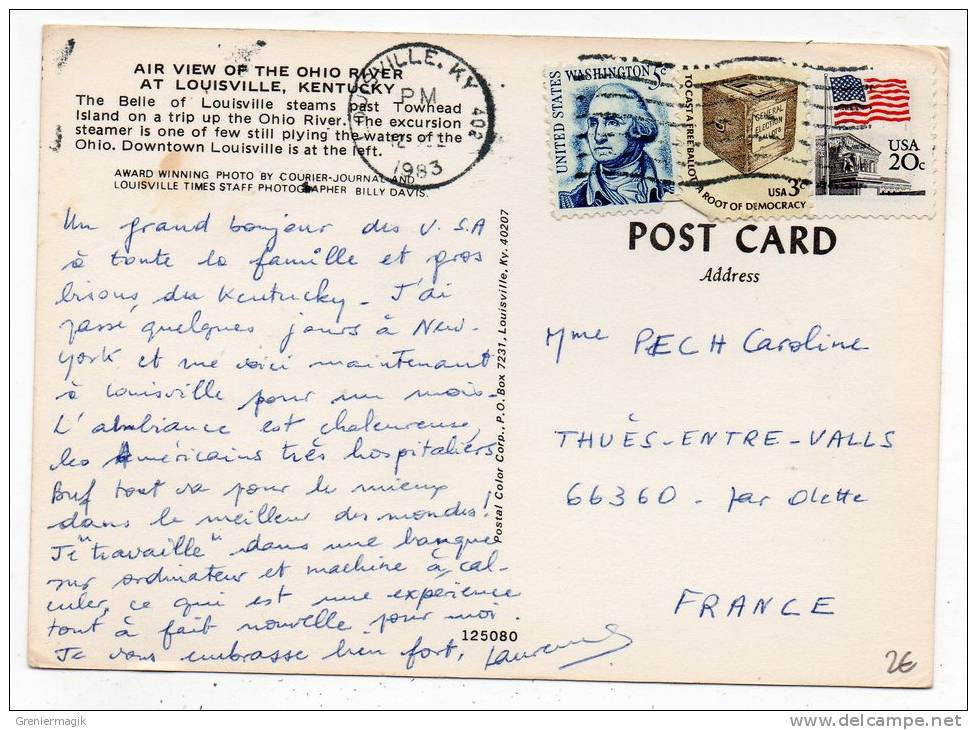 AIR VIEW OF THE OHIO RIVER
AT LOUISVILLE, KENTUCKY
The Belle of Louisville steams past Towhead
Island on a trip up the Ohio River. The excursion
steamer is one of few still plying the waters of the
Ohio. Downtown Louisville is at the left.
AWARD WINNING PHOTO BY COURIER-JOURNAL AND
LOUISVILLE TIMES STAFF PHOTOGRAPHER BILLY DAVIS.
Un grand bonjour des U.S.A
à toute la famille et gros
bisous du Kentucky - J'ai
passé quelques jours à New-
york et me voici maintenant
à Louisville pour un mois-
L'ambiance est chaleureuse,
les Américains très hospitaliers
Bref tout va pour le mieux
dans le meilleur des mondes!
Je "travaille" dans une banque
sur ordinateur et machine à cal-
culer, ce qui est une expérience
tout à fait nouvelle pour moi.
Je vous embrasse bien fort,
125080
Postal Color Corp., P.O. Box 7231, Louisville, Ky. 40207
LOUISVILLE, KY 402
PM
1983
UNITED STATES
WASHINGTON 5c
TO CAST A FREE BALLOT A ROOT OF DEMOCRACY
GENERAL
ELECTION
BALLOTS
USA 3c
USA
20c
POST CARD
Address
Mme PECH Caroline
THUÈS-ENTRE-VALLS
66360 - par Olette
FRANCE
2€
Greniermagik
www.delcampe.net